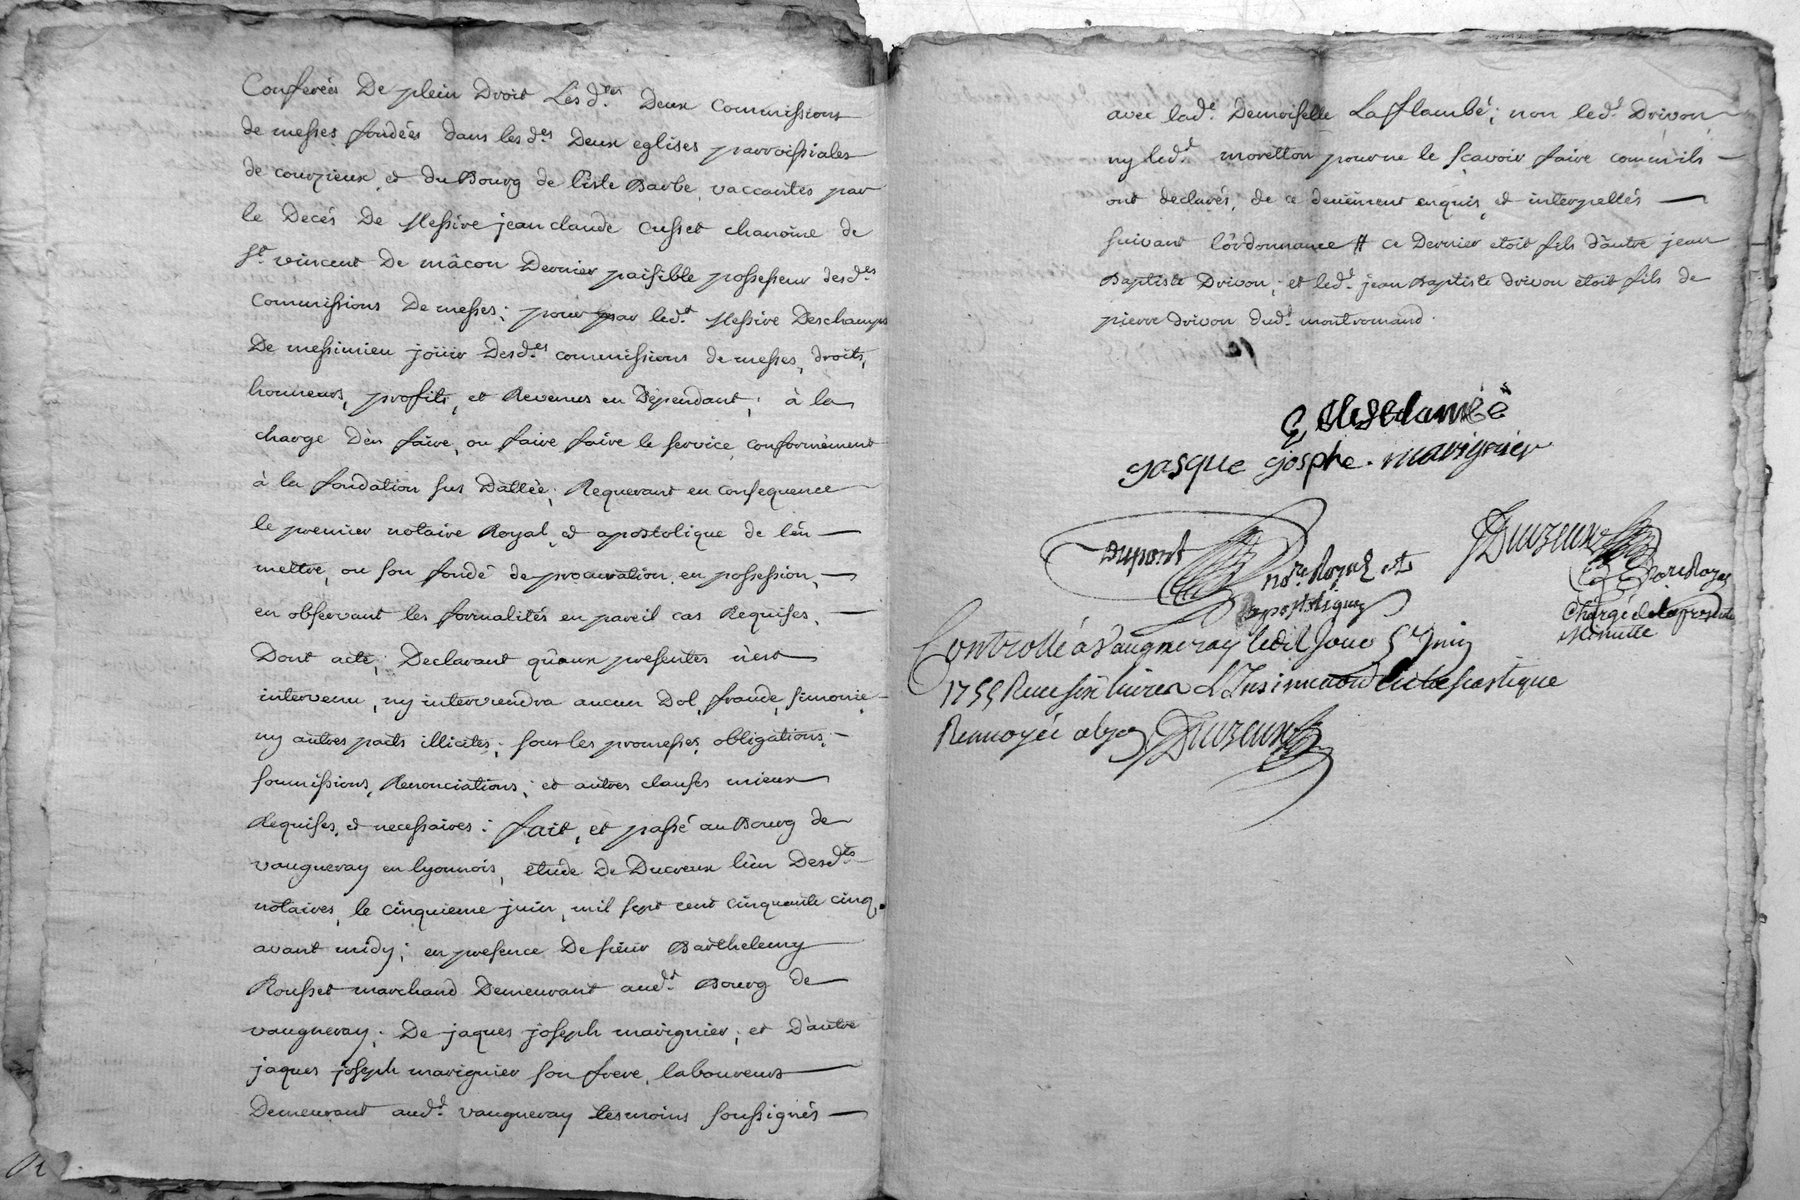 Conferées De plein Droit Lesd.tes Deux Commissions
de messes fondées dans lesd.es Deux eglises parroissiales
de courzieux, et du Bourg de l'isle Barbe, vaccantes par
le Decés De Messire jean claude Cusset chanoine de
St. vincent De mâcon Dernier paisible possesseur desd.es
Commissions De messes; pour par led.t Messire Deschamps
De messimieu joüir Desd.es commissions de messes, droits,
honneurs, profits, et Revenus en Dépendant; à la
charge D'en faire, ou faire faire le service, conformément
à la fondation sus Dattée; Requerant en consequence
le premier notaire Royal, et apostolique de l'en
mettre, ou son fondé de procuration en possession,
en observant les formalités en pareil cas Requises.
Dont acte; Declarant qu'aux presentes n'est
intervenu, ny interviendra aucun Dol, fraude, simonie
ny autres pacts illicites; sous les promesses, obligations,
soumissions, Renonciations; et autres clauses mieux
Requises, et necessaires: fait, et passé au Bourg de
vaugneray en lyonnois, étude De Ducreux l'un Desd.ts
notaires, le cinquieme juin, mil sept cent cinquante cinq,
avant midy; en presence De sieur Barthelemy
Rousset marchand Demeurant aud.t Bourg de
vaugneray; De jaques joseph marignier; et D'autre
jaques joseph marignier son frere, laboureurs
Demeurant aud.t vaugneray tesmoins soussignés
avec lad.e Demoiselle Lafflambé; non led.t Drivon
ny led.t moretton pour ne le sçavoir faire comm'ils
ont declarés, de ce deüement enquis, et interpellés
suivant l'ordonnance # ce Dernier etoit fils d'autre jean
Baptiste Drivon; et led.t jean Baptiste drivon étoit fils de
pierre drivon dud.t montromand.
gasque gosphe. marignier
Dupont
Ducreux
nore. Royal et
apostolique
nore Royal
Chargé de la presente
Minutte
Controllé à Vaugneray ledit Jour 5e Juin
1755 Receu six livres L'Insinuation Eclesiastique
Renvoyée a Lyon Ducreux